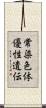 常染色体
優性遺伝